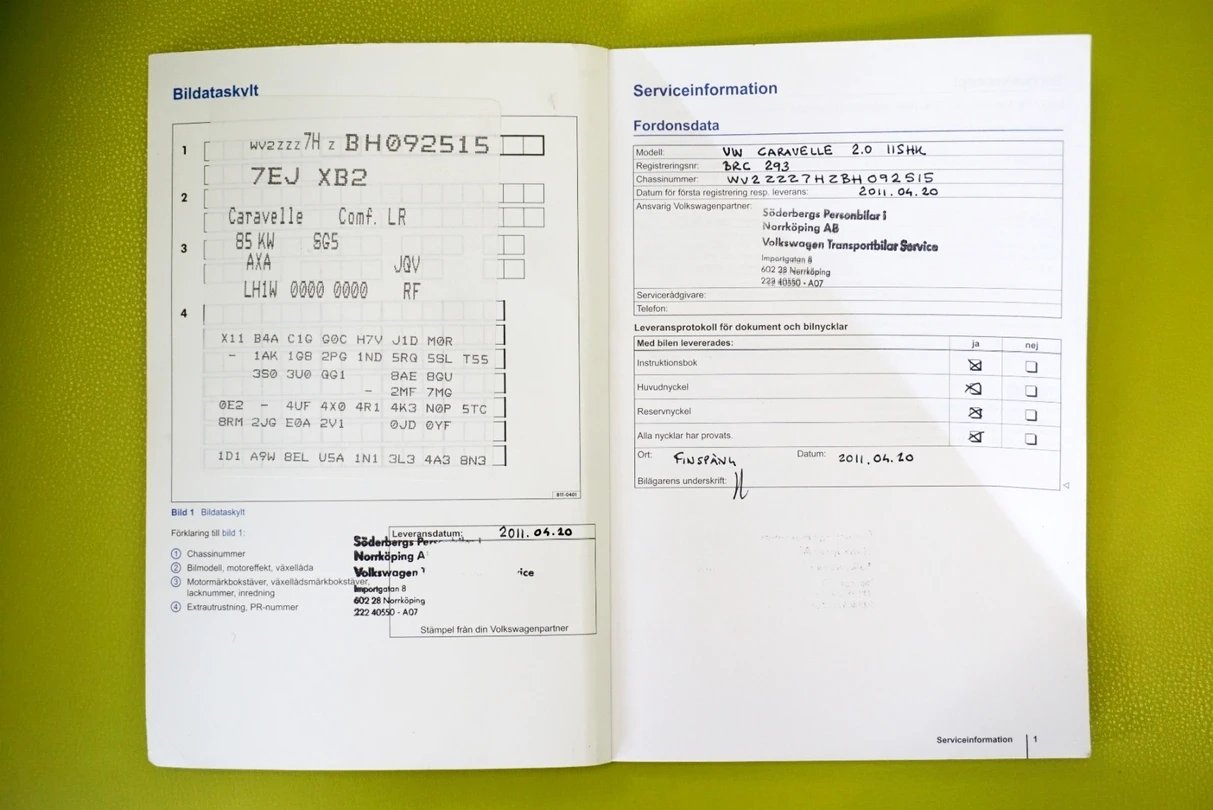 Bildataskylt
1
WV2ZZZ7H Z BH092515
7EJ XB2
2
Caravelle Comf. LR
3
85 KW SG5
AXA JQV
LH1W 0000 0000 RF
4
X11 B4A C1G G0C H7V J1D M0R
- 1AK 1G8 2PG 1ND 5RQ 5SL T5S
3S0 3U0 QG1 8AE 8GU
- 2MF 7MG
0E2 - 4UF 4X0 4R1 4K3 N0P 5TC
8RM 2JG E0A 2V1 0JD 0YF
1D1 A9W 8EL U5A 1N1 3L3 4A3 8N3
B1T-0461
Bild 1 Bildataskylt
Förklaring till bild 1:
① Chassinummer
② Bilmodell, motoreffekt, växellåda
③ Motormärkbokstäver, växellådsmärkbokstäver,
lacknummer, inredning
④ Extrautrustning, PR-nummer
Leveransdatum: 2011.04.20
Söderbergs
Norrköping A
Volkswagen
Importgatan 8
602 28 Norrköping
222 40550 - A07
Stämpel från din Volkswagenpartner
Serviceinformation
Fordonsdata
Modell: VW CARAVELLE 2.0 115HK
Registreringsnr: BRC 293
Chassinummer: WV2ZZZ7HZBH092515
Datum för första registrering resp. leverans: 2011.04.20
Ansvarig Volkswagenpartner:
Söderbergs Personbilar i
Norrköping AB
Volkswagen Transportbilar Service
Importgatan 8
602 28 Norrköping
222 40550 - A07
Servicerådgivare:
Telefon:
Leveransprotokoll för dokument och bilnycklar
Med bilen levererades: ja nej
Instruktionsbok
Huvudnyckel
Reservnyckel
Alla nycklar har provats.
Ort: FINSPÅNG Datum: 2011.04.20
Bilägarens underskrift:
Serviceinformation 1